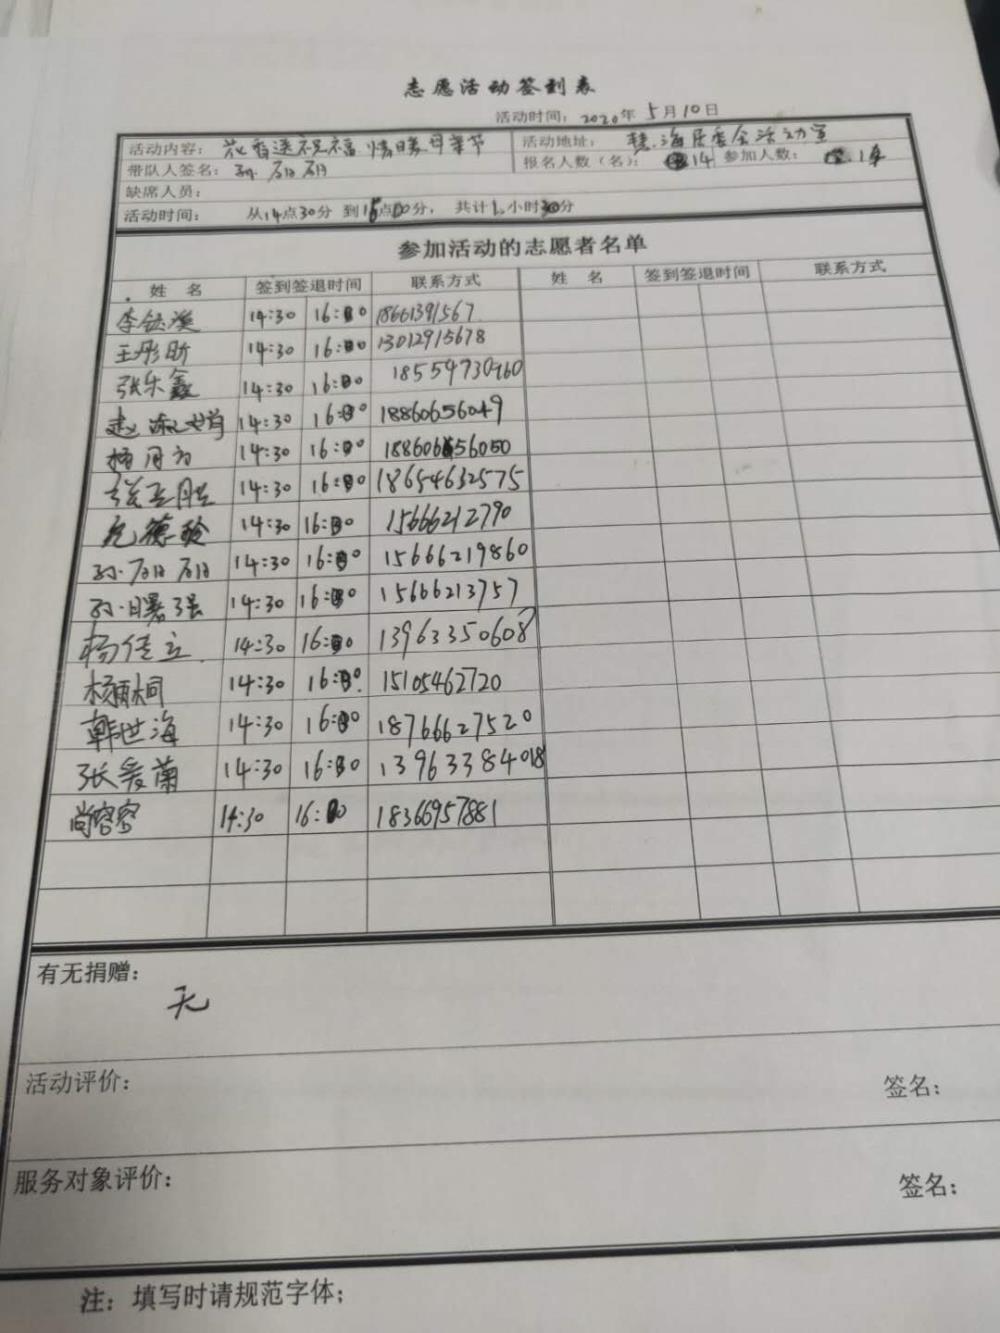 志愿活动签到表
活动时间：2020年5月10日
活动内容：花香送祝福 情暖母亲节 活动地址：慧海居委会活动室
带队人签名：孙 报名人数（名）：14 参加人数：14
缺席人员：
活动时间： 从14点30分 到16点00分， 共计1小时30分
参加活动的志愿者名单
姓 名 签到签退时间 联系方式 姓 名 签到签退时间 联系方式
李 14:30 16:00 18661391567
王彤昕 14:30 16:00 13012915678
张乐鑫 14:30 16:00 18559730960
赵 14:30 16:00 18860656049
杨月 14:30 16:00 18860656050
张玉胜 14:30 16:00 18654632575
德 14:30 16:00 15666212790
孙 14:30 16:00 15666219860
孙曙强 14:30 16:00 15666213757
杨佳立 14:30 16:00 13963350608
杨雨桐 14:30 16:00 15105462720
韩世海 14:30 16:00 18766627520
张爱菊 14:30 16:00 13963384018
尚容容 14:30 16:00 18366957881
有无捐赠：
无
活动评价： 签名：
服务对象评价： 签名：
注：填写时请规范字体；